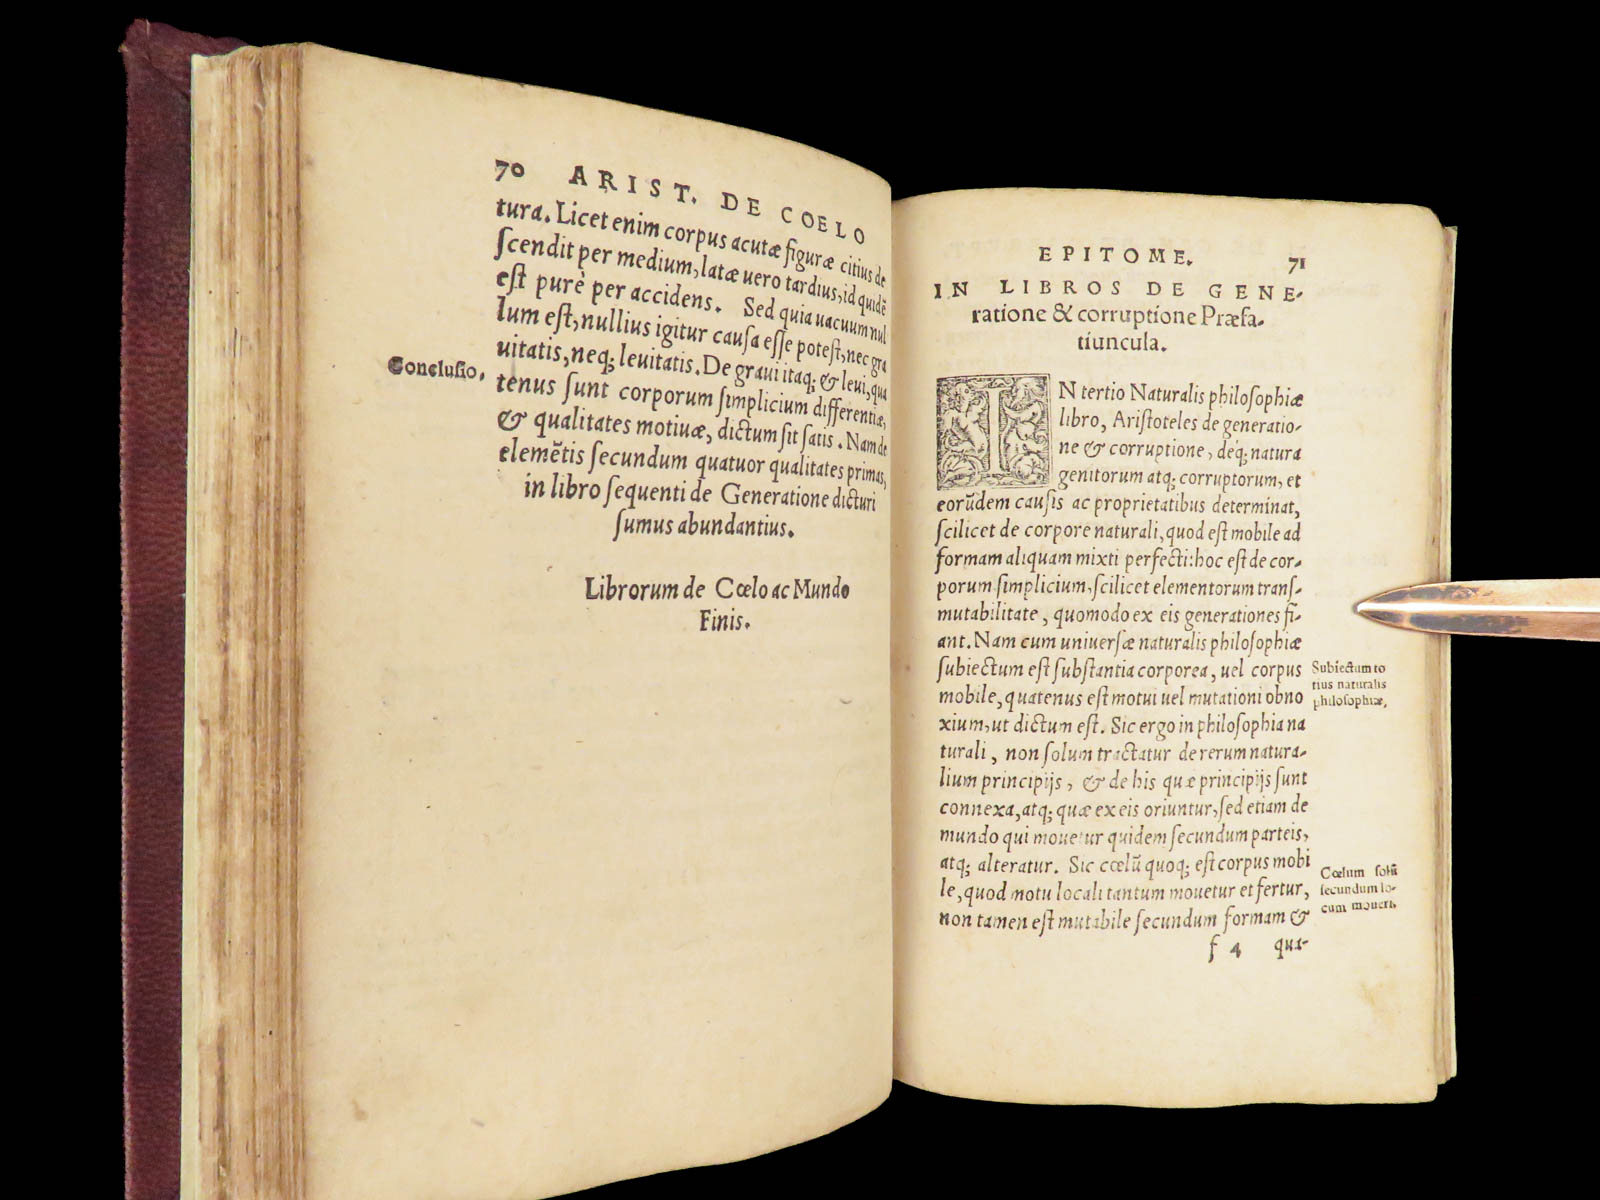 70 ARIST. DE COELO
tura. Licet enim corpus acutæ figuræ citius de
scendit per medium, latæ uero tardius, id quidē
est purè per accidens. Sed quia uacuum nul
lum est, nullius igitur causa esse potest, nec gra
uitatis, neq; leuitatis. De graui itaq; & leui, qua
Conclusio.
tenus sunt corporum simplicium differentiæ,
& qualitates motiuæ, dictum sit satis. Nam de
elemētis secundum quatuor qualitates primas,
in libro sequenti de Generatione dicturi
sumus abundantius.
Librorum de Cœlo ac Mundo
Finis.
EPITOME. 71
IN LIBROS DE GENE-
ratione & corruptione Præfa-
tiuncula.
IN tertio Naturalis philosophiæ
libro, Aristoteles de generatio-
ne & corruptione, déq; natura
genitorum atq; corruptorum, et
eorūdem causis ac proprietatibus determinat,
scilicet de corpore naturali, quod est mobile ad
formam aliquam mixti perfecti: hoc est de cor-
porum simplicium, scilicet elementorum trans-
mutabilitate, quomodo ex eis generationes fi-
ant. Nam cum uniuersæ naturalis philosophiæ
subiectum est substantia corporea, uel corpus
mobile, quatenus est motui uel mutationi obno
xium, ut dictum est. Sic ergo in philosophia na
turali, non solum tractatur de rerum natura-
lium principijs, & de his quæ principijs sunt
connexa, atq; quæ ex eis oriuntur, sed etiam de
mundo qui mouetur quidem secundum parteis,
atq; alteratur. Sic cœlū quoq; est corpus mobi
le, quod motu locali tantum mouetur et fertur,
non tamen est mutabile secundum formam &
Subiectum to
tius naturalis
philosophiæ.
Cœlum solū
secundum lo-
cum moueri.
f 4 qua-